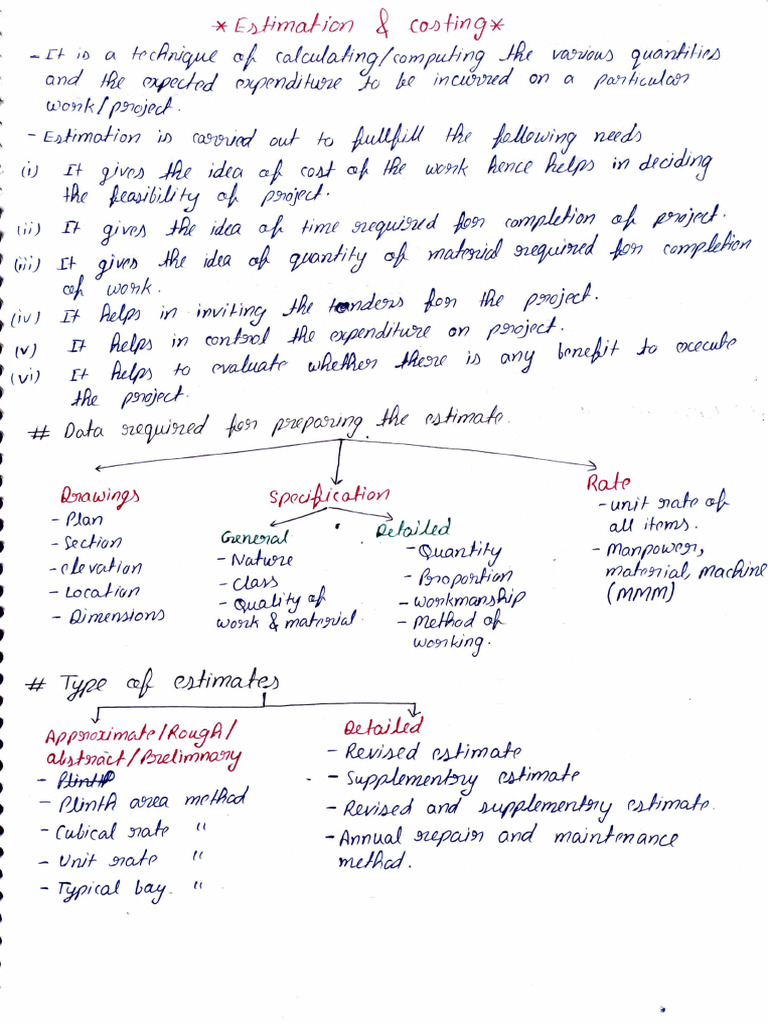 *Estimation & costing*
- It is a technique of calculating/computing the various quantities
and the expected expenditure to be incurred on a particular
work/project.
- Estimation is carried out to fullfill the following needs
(i) It gives the idea of cost of the work hence helps in deciding
the feasibility of project.
(ii) It gives the idea of time required for completion of project.
(iii) It gives the idea of quantity of material required for completion
of work.
(iv) It helps in inviting the tenders for the project.
(v) It helps in control the expenditure on project.
(vi) It helps to evaluate whether there is any benefit to execute
the project.
# Data required for preparing the estimate.
Drawings
- Plan
- Section
- elevation
- Location
- Dimensions
Specification
General
- Nature
- Class
- Quality of
work & material
Detailed
- Quantity
- Proportion
- workmanship
- Method of
working.
Rate
- unit rate of
all items.
- Manpower,
material, machine
(MMM)
# Type of estimates
Approximate/Rough/
abstract/Prelimnary
- Plinth
- Plinth area method
- Cubical rate "
- Unit rate "
- Typical bay. "
Detailed
- Revised estimate
- Supplementry estimate
- Revised and supplementry estimate.
- Annual repair and maintenance
method.